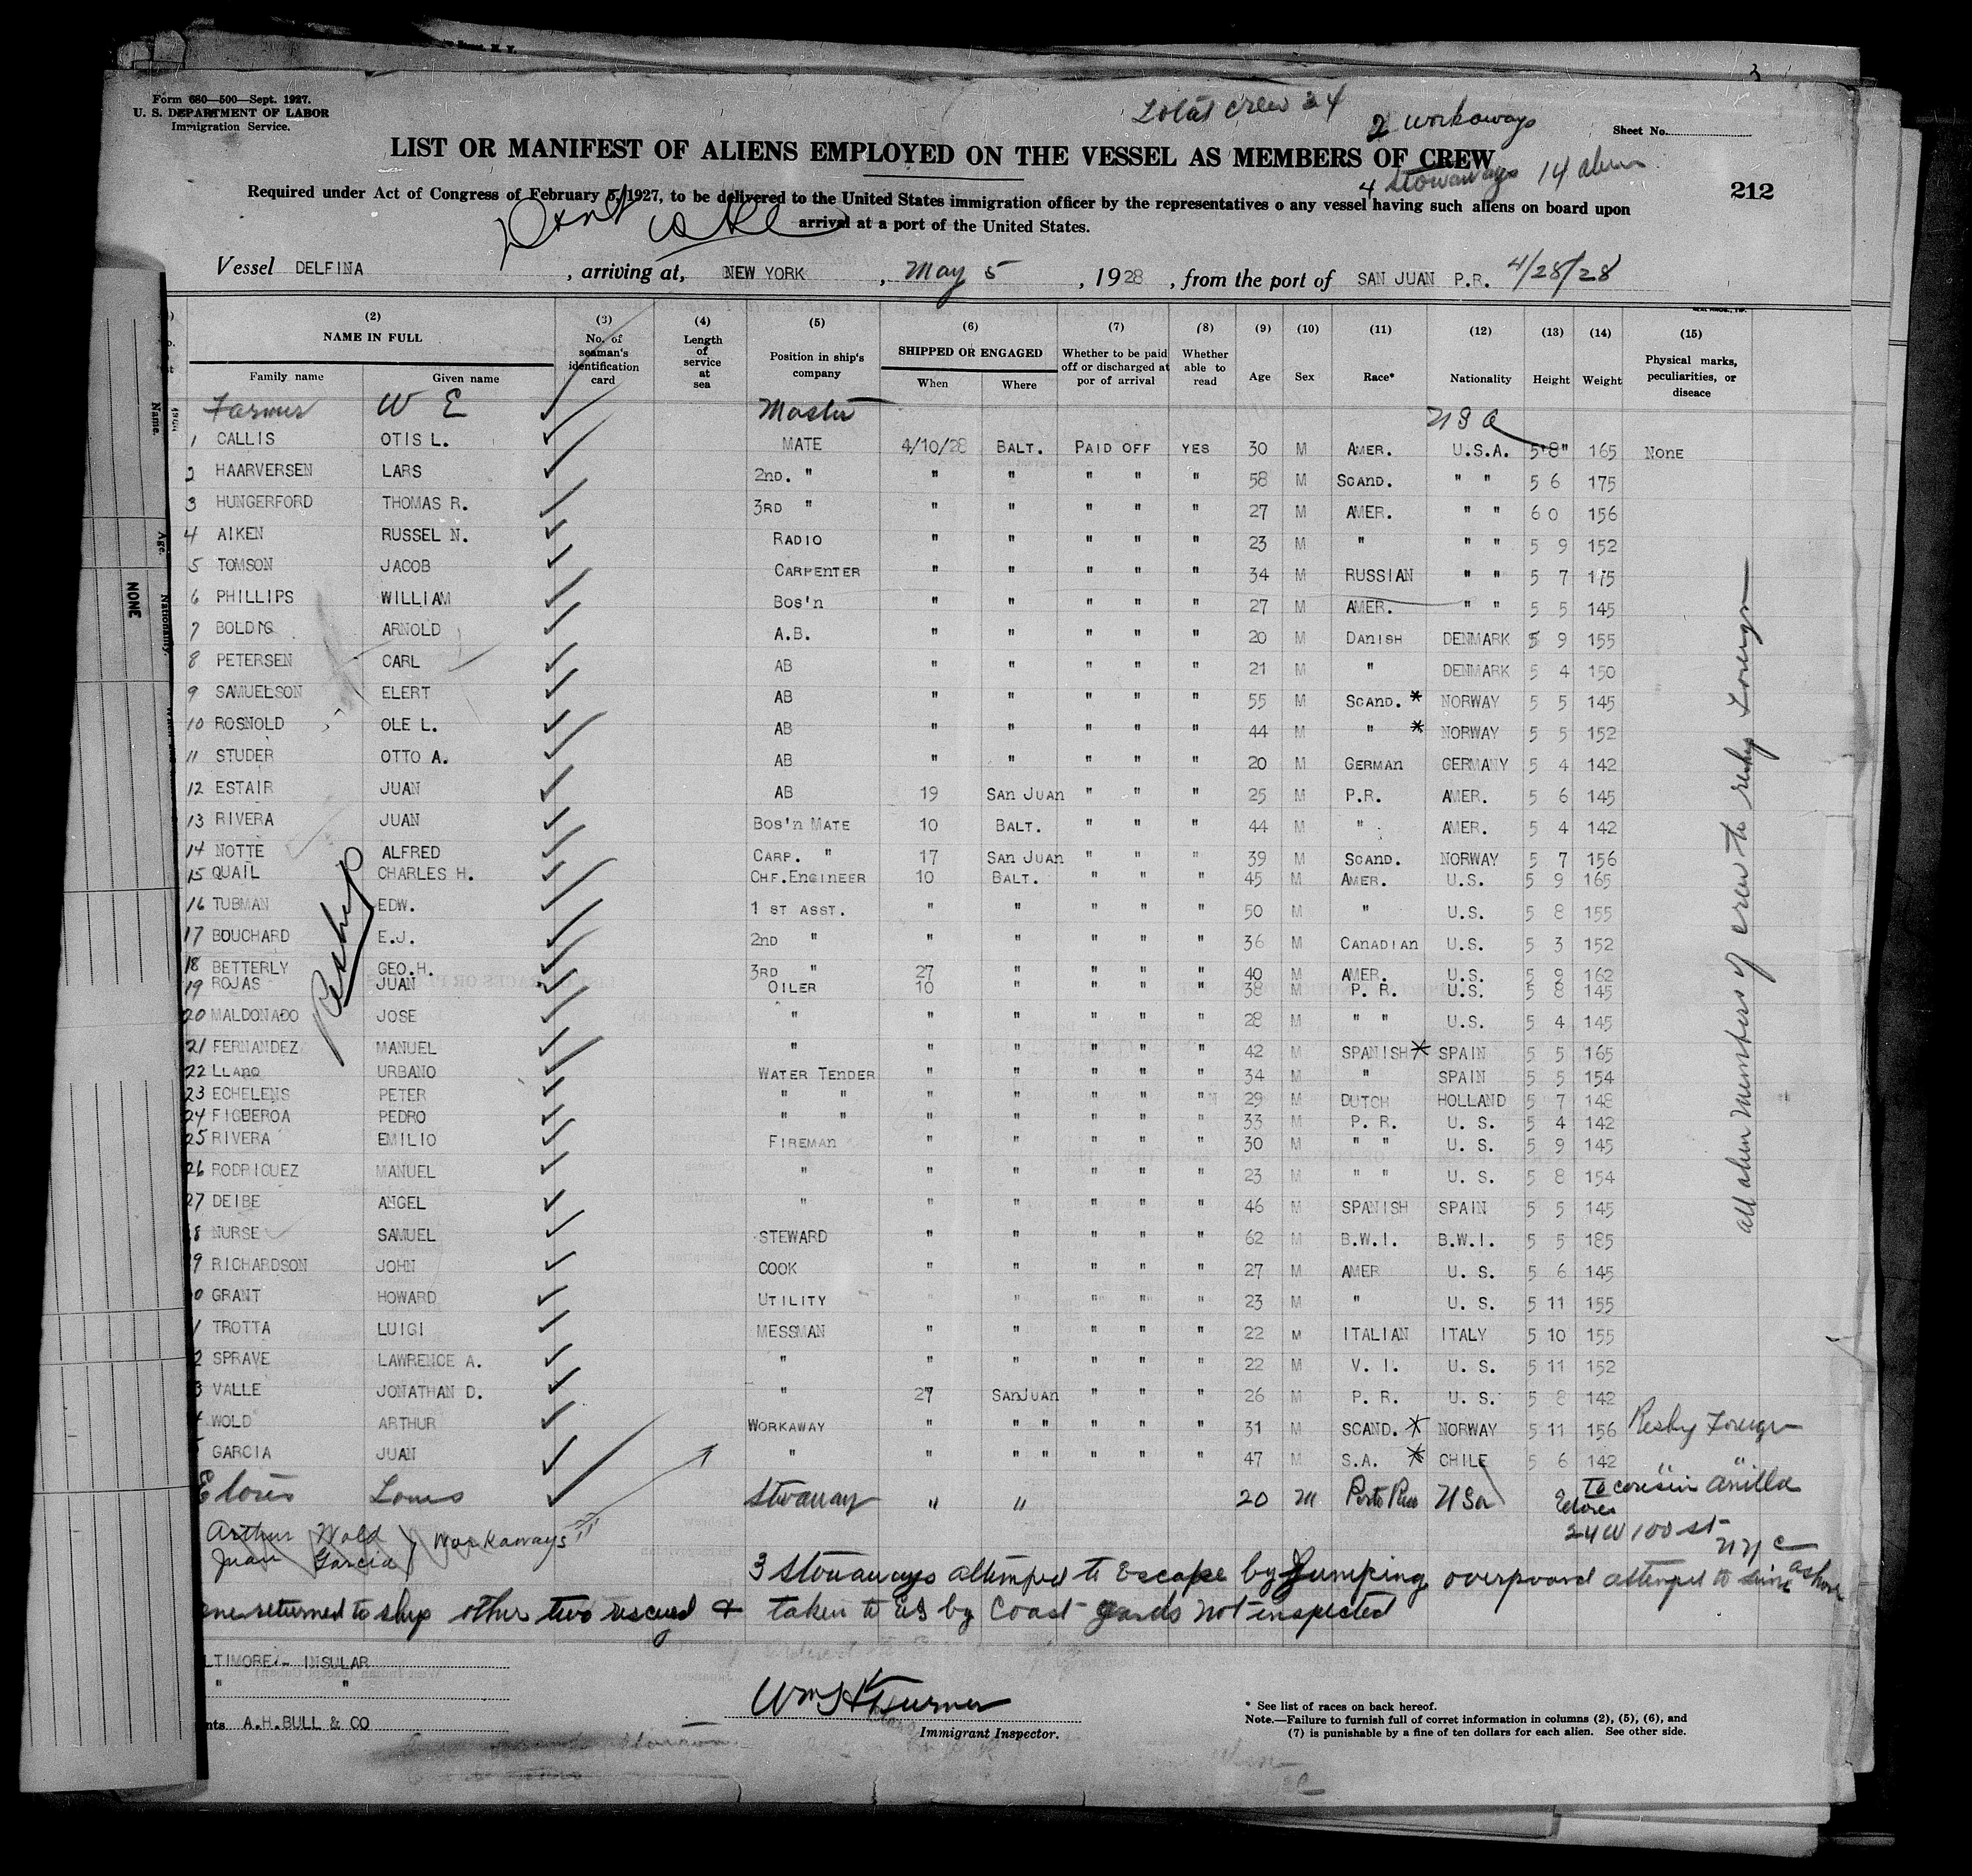 3
Form 680—500—Sept. 1927.
U. S. DEPARTMENT OF LABOR
Immigration Service.
Total crew 34
2 workaways
Sheet No.
LIST OR MANIFEST OF ALIENS EMPLOYED ON THE VESSEL AS MEMBERS OF CREW
4 Stowaways 14 aliens
212
Required under Act of Congress of February 5, 1927, to be delivered to the United States immigration officer by the representatives o any vessel having such aliens on board upon
arrival at a port of the United States.
Vessel DELFINA , arriving at, NEW YORK , May 5 , 1928 , from the port of SAN JUAN P.R. 4/28/28
(2) NAME IN FULL Family name Given name (3) No. of seaman's identification card (4) Length of service at sea (5) Position in ship's company (6) SHIPPED OR ENGAGED When Where (7) Whether to be paid off or discharged at por of arrival (8) Whether able to read (9) Age (10) Sex (11) Race* (12) Nationality (13) Height (14) Weight (15) Physical marks, peculiarities, or disease
Farmer W E Master U S A
1 CALLIS OTIS L. MATE 4/10/28 BALT. PAID OFF YES 30 M AMER. U.S.A. 5'8" 165 NONE
2 HAARVERSEN LARS 2ND. " " " " " " 58 M SCAND. " " 5 6 175
3 HUNGERFORD THOMAS R. 3RD " " " " " " 27 M AMER. " " 6 0 156
4 AIKEN RUSSEL N. RADIO " " " " " 23 M " " " 5 9 152
5 TOMSON JACOB CARPENTER " " " " " 34 M RUSSIAN " " 5 7 175
6 PHILLIPS WILLIAM BOS'N " " " " " 27 M AMER. " " 5 5 145
7 BOLDIG ARNOLD A.B. " " " " " 20 M DANISH DENMARK 5 9 155
8 PETERSEN CARL AB " " " " " 21 M " DENMARK 5 4 150
9 SAMUELSON ELERT AB " " " " " 55 M SCAND. * NORWAY 5 5 145
10 ROSNOLD OLE L. AB " " " " " 44 M " * NORWAY 5 5 152
11 STUDER OTTO A. AB " " " " " 20 M GERMAN GERMANY 5 4 142
12 ESTAIR JUAN AB 19 SAN JUAN " " " 25 M P.R. AMER. 5 6 145
13 RIVERA JUAN BOS'N MATE 10 BALT. " " " 44 M " AMER. 5 4 142
14 NOTTE ALFRED CARP. " 17 SAN JUAN " " " 39 M SCAND. NORWAY 5 7 156
15 QUAIL CHARLES H. CHF.ENGINEER 10 BALT. " " " 45 M AMER. U.S. 5 9 165
16 TUBMAN EDW. 1 ST ASST. " " " " " 50 M " U.S. 5 8 155
17 BOUCHARD E.J. 2ND " " " " " " 36 M CANADIAN U.S. 5 3 152
18 BETTERLY GEO.H. 3RD " 27 " " " " 40 M AMER. U.S. 5 9 162
19 ROJAS JUAN OILER 10 " " " " 38 M P. R. U.S. 5 8 145
20 MALDONADO JOSE " " " " " " 28 M " " U.S. 5 4 145
21 FERNANDEZ MANUEL " " " " " " 42 M SPANISH * SPAIN 5 5 165
22 LLANO URBANO WATER TENDER " " " " " 34 M " SPAIN 5 5 154
23 ECHELENS PETER " " " " " " " 29 M DUTCH HOLLAND 5 7 148
24 FIGEEROA PEDRO " " " " " " " 33 M P. R. U. S. 5 4 142
25 RIVERA EMILIO FIREMAN " " " " " 30 M " " U. S. 5 9 145
26 RODRIGUEZ MANUEL " " " " " " 23 M " " U. S. 5 8 154
27 DEIBE ANGEL " " " " " " 46 M SPANISH SPAIN 5 5 145
8 NURSE SAMUEL STEWARD " " " " " 62 M B.W.I. B.W.I. 5 5 185
9 RICHARDSON JOHN COOK " " " " " 27 M AMER U. S. 5 6 145
0 GRANT HOWARD UTILITY " " " " " 23 M " U. S. 5 11 155
1 TROTTA LUIGI MESSMAN " " " " " 22 M ITALIAN ITALY 5 10 155
2 SPRAVE LAWRENCE A. " " " " " " 22 M V. I. U. S. 5 11 152
3 VALLE JONATHAN D. " 27 SANJUAN " " " 26 M P. R. U. S. 5 8 142
4 WOLD ARTHUR WORKAWAY " " " " " " 31 M SCAND. * NORWAY 5 11 156 Reship Foreign
5 GARCIA JUAN " " " " " " " 47 M S.A. * CHILE 5 6 142 " "
Elores Louis Stowaway " " 20 M Porto Rico USA To cousin Anilla
Elores
24 W 100 St
NYC
Arthur Wold
Juan Garcia } Workaways
3 Stowaways attempted to Escape by Jumping overboard attempt to swim ashore
one returned to ship other two rescued & taken to EI by Coast Guards not inspected
Reship
all alien members of crew to reship Foreign
LTIMORE - INSULAR
" "
nts A.H.BULL & CO
Wm H Turner
Immigrant Inspector.
* See list of races on back hereof.
Note.—Failure to furnish full of corret information in columns (2), (5), (6), and
(7) is punishable by a fine of ten dollars for each alien. See other side.
Name.
Age.
Nationality.
NONE